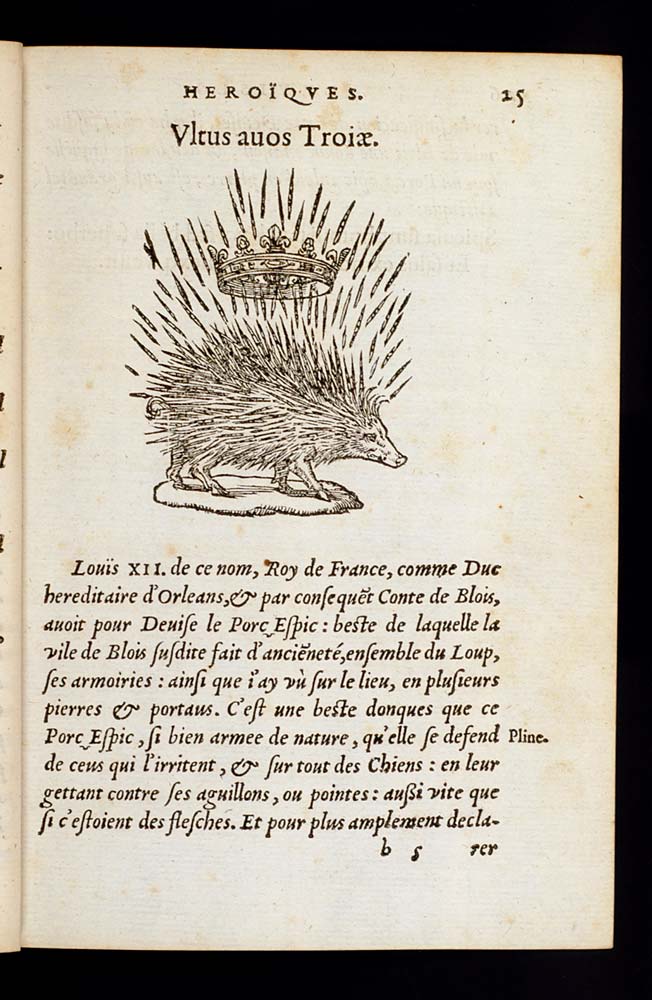 HEROÏQVES. 25
Vltus auos Troiæ.
Louïs XII. de ce nom, Roy de France, comme Duc
hereditaire d'Orleans, & par conſequẽt Conte de Blois,
auoit pour Deuiſe le Porc‿Eſpic : beſte de laquelle la
vile de Blois ſuſdite fait d'anciẽneté, enſemble du Loup,
ſes armoiries : ainſi que i'ay vù ſur le lieu, en pluſieurs
pierres & portaus. C'eſt une beſte donques que ce
Porc‿Eſpic, ſi bien armee de nature, qu'elle ſe defend Pline.
de ceus qui l'irritent, & ſur tout des Chiens : en leur
gettant contre ſes aguillons, ou pointes : außi vite que
ſi c'eſtoient des fleſches. Et pour plus amplement decla-
b 5 rer